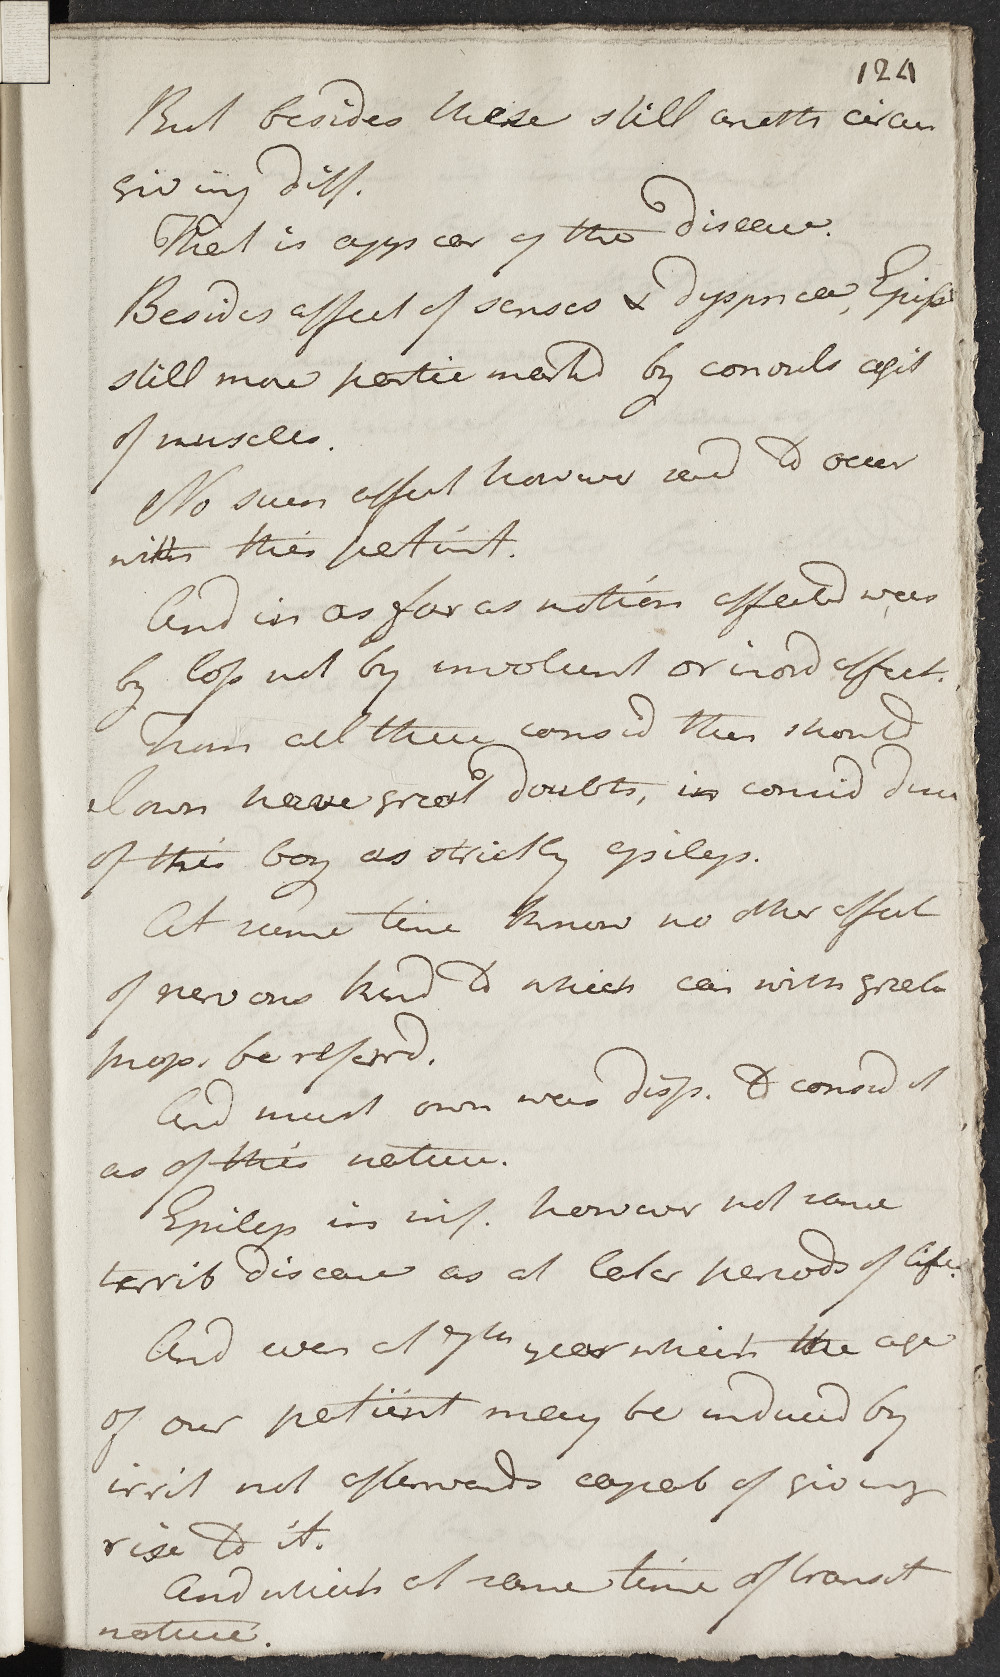 124
But besides these still anoth circum
giving diff.
That is appear of the disease.
Besides affect of senses & dyspnœa, Epilep
still more partic markd by convuls agit
of muscles.
No such affect however seemd to occur
with this patient.
And in as far as motion affected was
by loss not by involunt or inord affect.
From all these consid then should
I own have great doubts, in considg disease
of this boy as strictly epilep.
At same time know no other affect
of nervous kind to which can with greater
prop. be referrd.
And must own was disp. to consid it
as of this nature.
Epilep in inf. however not same
terrib disease as at later periods of life.
And even at 7th year which the age
of our patient may be induced by
irrit not afterwards capab of giving
rise to it.
And which at same time of transit
nature.